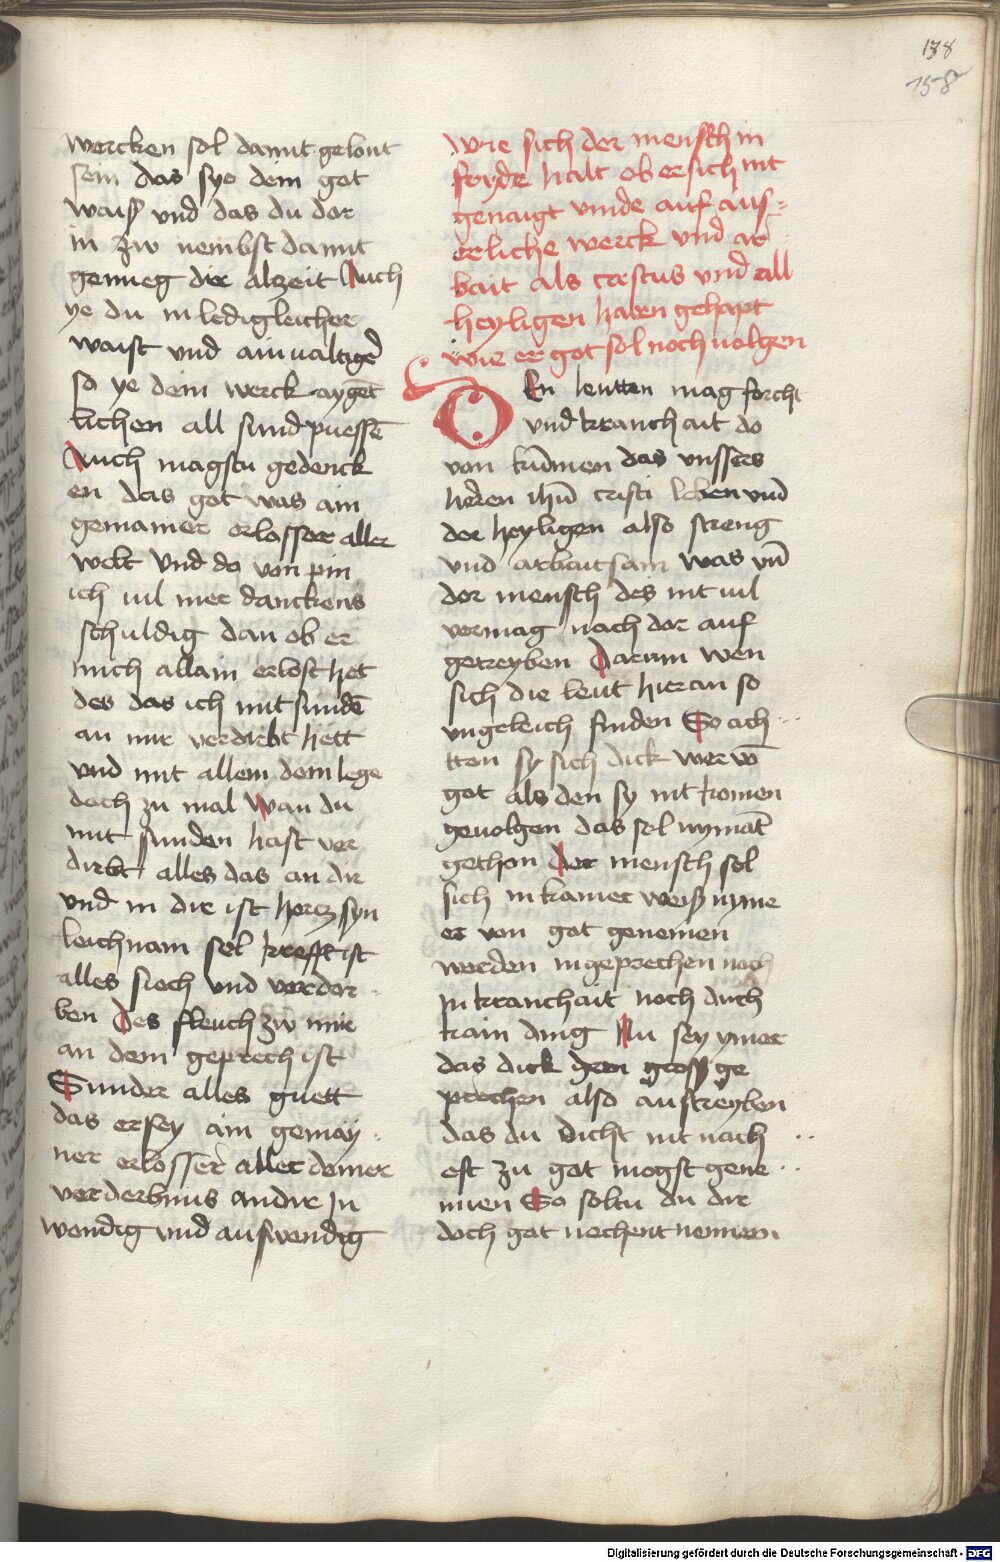 138
158
wercken sol damit gelont
sein das sye dein got
waiß und das du dar
in zw nembst damit
genueg dir alzeit Auch
ye du in ledigleicher
waist und ainualtiger
so ye dein werck aygēt
lichen all sund puessē
Auch magstu gedenck
en das got was ain
gemainer erlosser aller
welt Und da von pin
ich uil mer danckens
schuldig dan ob er
mich allain erlost het
des das ich mit sundē
an mir verdirbt hett
und mit allem dem lege
doch zu mal Wan du
mit sunden hast ver
dirbt alles das an dir
und in dir ist hercz syn
leichnam sel krefft ist
alles siech und verdor
ben Des fleuch zw mir
an dem geprech ist
Sunder alles guett
das er sey ain gemay
ner erlosser aller deiner
verderbnus an dir In
wendig und auswendig
Wie sich der mensch in
fryde halt ob er sich nit
genaigt vinde auf aus=
erliche werck und ar
bait als cristus und all
heyligen haben gehapt
wie er got sol noch uolgen
DEn leutten mag forcht
und kranchait do
von kūmen das unssers
herren ihū cristi leben und
der heyligen also streng
und arbaitsam was uñ
der mensch des nit uil
vermag noch dar auf
getreyben Darum wen
sich die leut hieran so
ungeleich finden So ach
tten sy sich dick wer vō
got als den sy nit komen
geuolgen das sol nymāt
gethon Der mensch sol
sich in kainer weiß nyme
er von got genemen
werden in geprechen noch
In kranchait noch duch
kain ding Nu sey ymer
das dick dein groß ge
prechen also austreyben
das du dicht nit nach
est zu got mogst gene
nuen So soltu du dir
doch got nechent nemmen
Digitalisierung gefördert durch die Deutsche Forschungsgemeinschaft - DFG